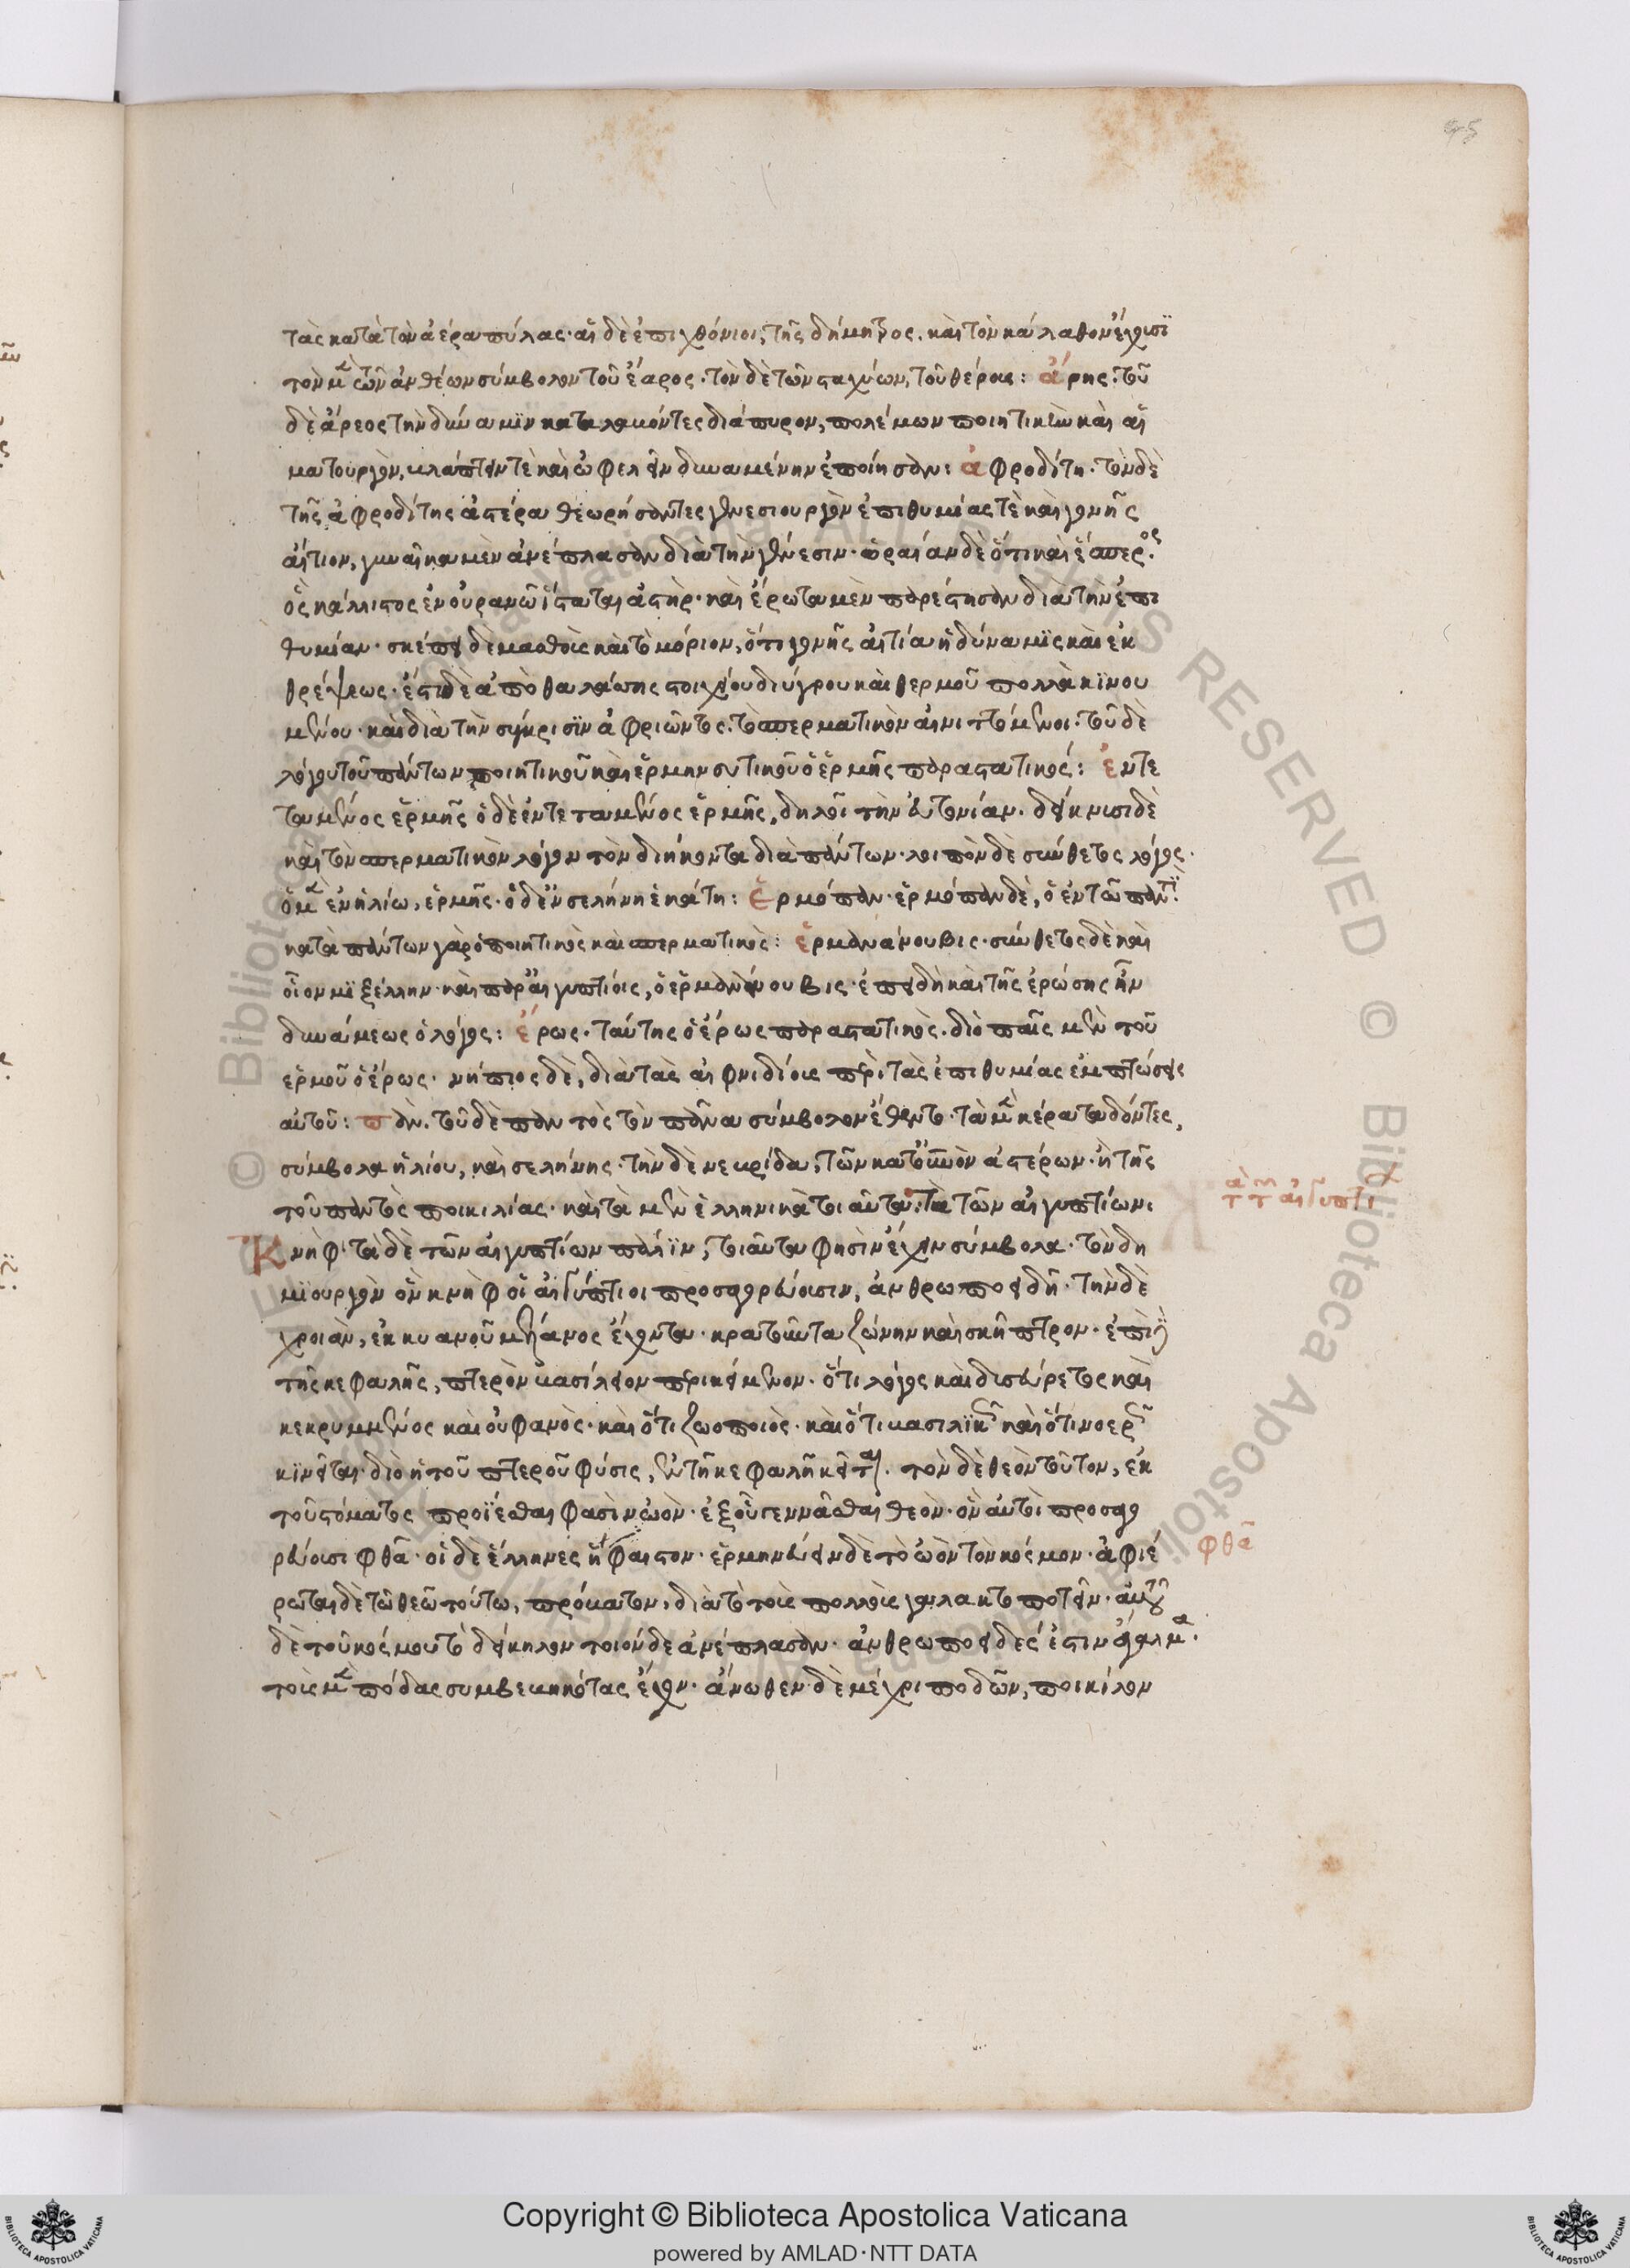 τὰς κατὰ τὸν ἀέρα πύλας· αἱ δὲ ἐπιχθόνιοι, τῆς δήμητρος. καὶ τὸν κάλαθον ἔχουσϊ
τὸν μὲν τῶν ἀνθέων σύμβολον τοῦ ἔαρος· τὸν δὲ τῶν σταχύων, τοῦ θέρους: ἄρης. τοῦ
δὲ ἄρεος τὴν δύναμϊν καταλαβόντες διάπυρον, πολέμων ποιητικὴν καὶ αἱ
ματουργὸν, βλάπτειν τὲ καὶ ὠφελεῖν δυναμένην ἐποίησαν: ἀφροδίτη. τὸν δὲ
τῆς ἀφροδίτης ἀστέρα θεωρήσαντες γενεσιουργὸν ἐπιθυμίας τὲ καὶ γονῆς
αἴτιον, γυναῖκα μὲν ἀνέπλασαν διὰ τὴν γένεσιν· ὡραίαν δὲ ὅτι καὶ ἕσπερος.
ὃς κάλλιστος ἐν οὐρανῶ ἵσταται ἀστήρ· καὶ ἔρωτα μὲν παρέστησαν διὰ τὴν ἐπι
θυμίαν· σκέπει δὲ μασθοὺς καὶ τὸ μόριον, ὅτι γονῆς αἰτία ἡ δύναμϊς καὶ ἐκ
θρέψεως· ἔστι δὲ ἀπὸ θαλάσσης στοιχείου διύγρου καὶ θερμοῦ πολλὰ κϊνου
μένου· καὶ διὰ τὴν σύγκρισϊν ἀφριῶντος. τὸ σπερματικὸν αἰνιττόμενοι. τοῦ δὲ
λόγου τοῦ πάντων ποιητικοῦ καὶ ἑρμηνευτικοῦ ὁ ἑρμῆς παραστατικός: ἐντε
ταμένος ἑρμῆς ὁ δὲ ἐντεταμένος ἑρμῆς, δηλοῖ τὴν εὐτονίαν. δείκνυσι δὲ
καὶ τὸν σπερματικὸν λόγον τὸν διήκοντα διὰ πάντων· λοιπὸν δὲ σύνθετος λόγος.
ὁ μὲν ἐν ἡλίω, ἑρμῆς· ὁ δὲ ἐν σελήνη ἑκάτη: ἑρμόπαν· ἑρμόπαν δὲ, ὁ ἐν τῶ παντϊ.
κατὰ πάντων γὰρ ὁ ποιητικὸς καὶ σπερματικὸς: ἑρμανάνουβις· σύνθετος δὲ καὶ
οἷον μϊξέλλην· καὶ παρ' αἰγυπτίοις, ὁ ἑρμανάνουβις· ἐπειδὴ καὶ τῆς ἐρώσης ἦν
δυνάμεως ὁ λόγος: ἔρως· ταύτης ὁ ἔρως παραστατικὸς. διὸ παῖς μὲν τοῦ
ἑρμοῦ ὁ ἔρως· νήπιος δὲ, διὰ τὰς αἰφνιδίους περὶ τὰς ἐπιθυμίας ἐμπτώσεις
αὐτοῦ: πάν. τοῦ δὲ παντὸς τὸν πᾶνα σύμβολον ἔθεντο· τὰ μὲν κέρατα δόντες,
σύμβολα ἡλίου, καὶ σελήνης· τὴν δὲ νεβρίδα, τῶν κατ' οὐρανὸν ἀστέρων· ἢ τῆς
τοῦ παντὸς ποικιλίας· καὶ τὰ μὲν ἑλληνικὰ τοιαῦτα. τὰ τῶν αἰγυπτίων:
Κνήφ· τὰ δὲ τῶν αἰγυπτίων πάλϊν, τοιαῦτα φησὶν ἔχειν σύμβολα· τὸν δη
μϊουργὸν ὃν κνὴφ οἱ αἰγύπτιοι προσαγορεύουσιν, ἀνθρωποειδῆ· τὴν δὲ
χροιὰν, ἐκ κυανοῦ μέλανος ἔχοντα· κρατοῦντα ζώνην καὶ σκῆπτρον· ἐπὶ δὲ
τῆς κεφαλῆς, πτερὸν βασίλειον περικείμενον· ὅτι λόγος καὶ δυσεύρετος καὶ
κεκρυμμένος καὶ οὐ φανὸς· καὶ ὅτι ζωοποιὸς· καὶ ὅτι βασιλϊκὸς καὶ ὅτι νοερῶς
κϊνεῖται· διὸ ἡ τοῦ πτεροῦ φύσις, ἐν τῆ κεφαλῆ κεῖται. τὸν δὲ θεὸν τοῦτον, ἐκ
τοῦ στόματος προϊέσθαι φασὶν ὠὸν· ἐξ οὗ γεννᾶσθαι θεὸν· ὃν αὐτοὶ προσαγο
ρεύουσι φθᾶ· οἱ δὲ ἕλληνες ἥφαιστον· ἑρμηνεύειν δὲ τὸ ὠὸν τὸν κόσμον· ἀφιέ
ρωται δὲ τῶ θεῶ τούτω, πρόβατον, διὰ τὸ τοὺς παλαιοὺς γαλακτοποτεῖν· αὐτοῦ
δὲ τοῦ κόσμου τὸ δείκηλον τοιόνδε ἀνέπλασαν· ἀνθρωποειδές ἐστιν ἄγαλμα.
τοὺς μὲν πόδας συμβεβηκότας ἔχον· ἄνωθεν δὲ μέχρι ποδῶν, ποικίλον
φθᾶ
Copyright © Biblioteca Apostolica Vaticana
powered by AMLAD·NTT DATA